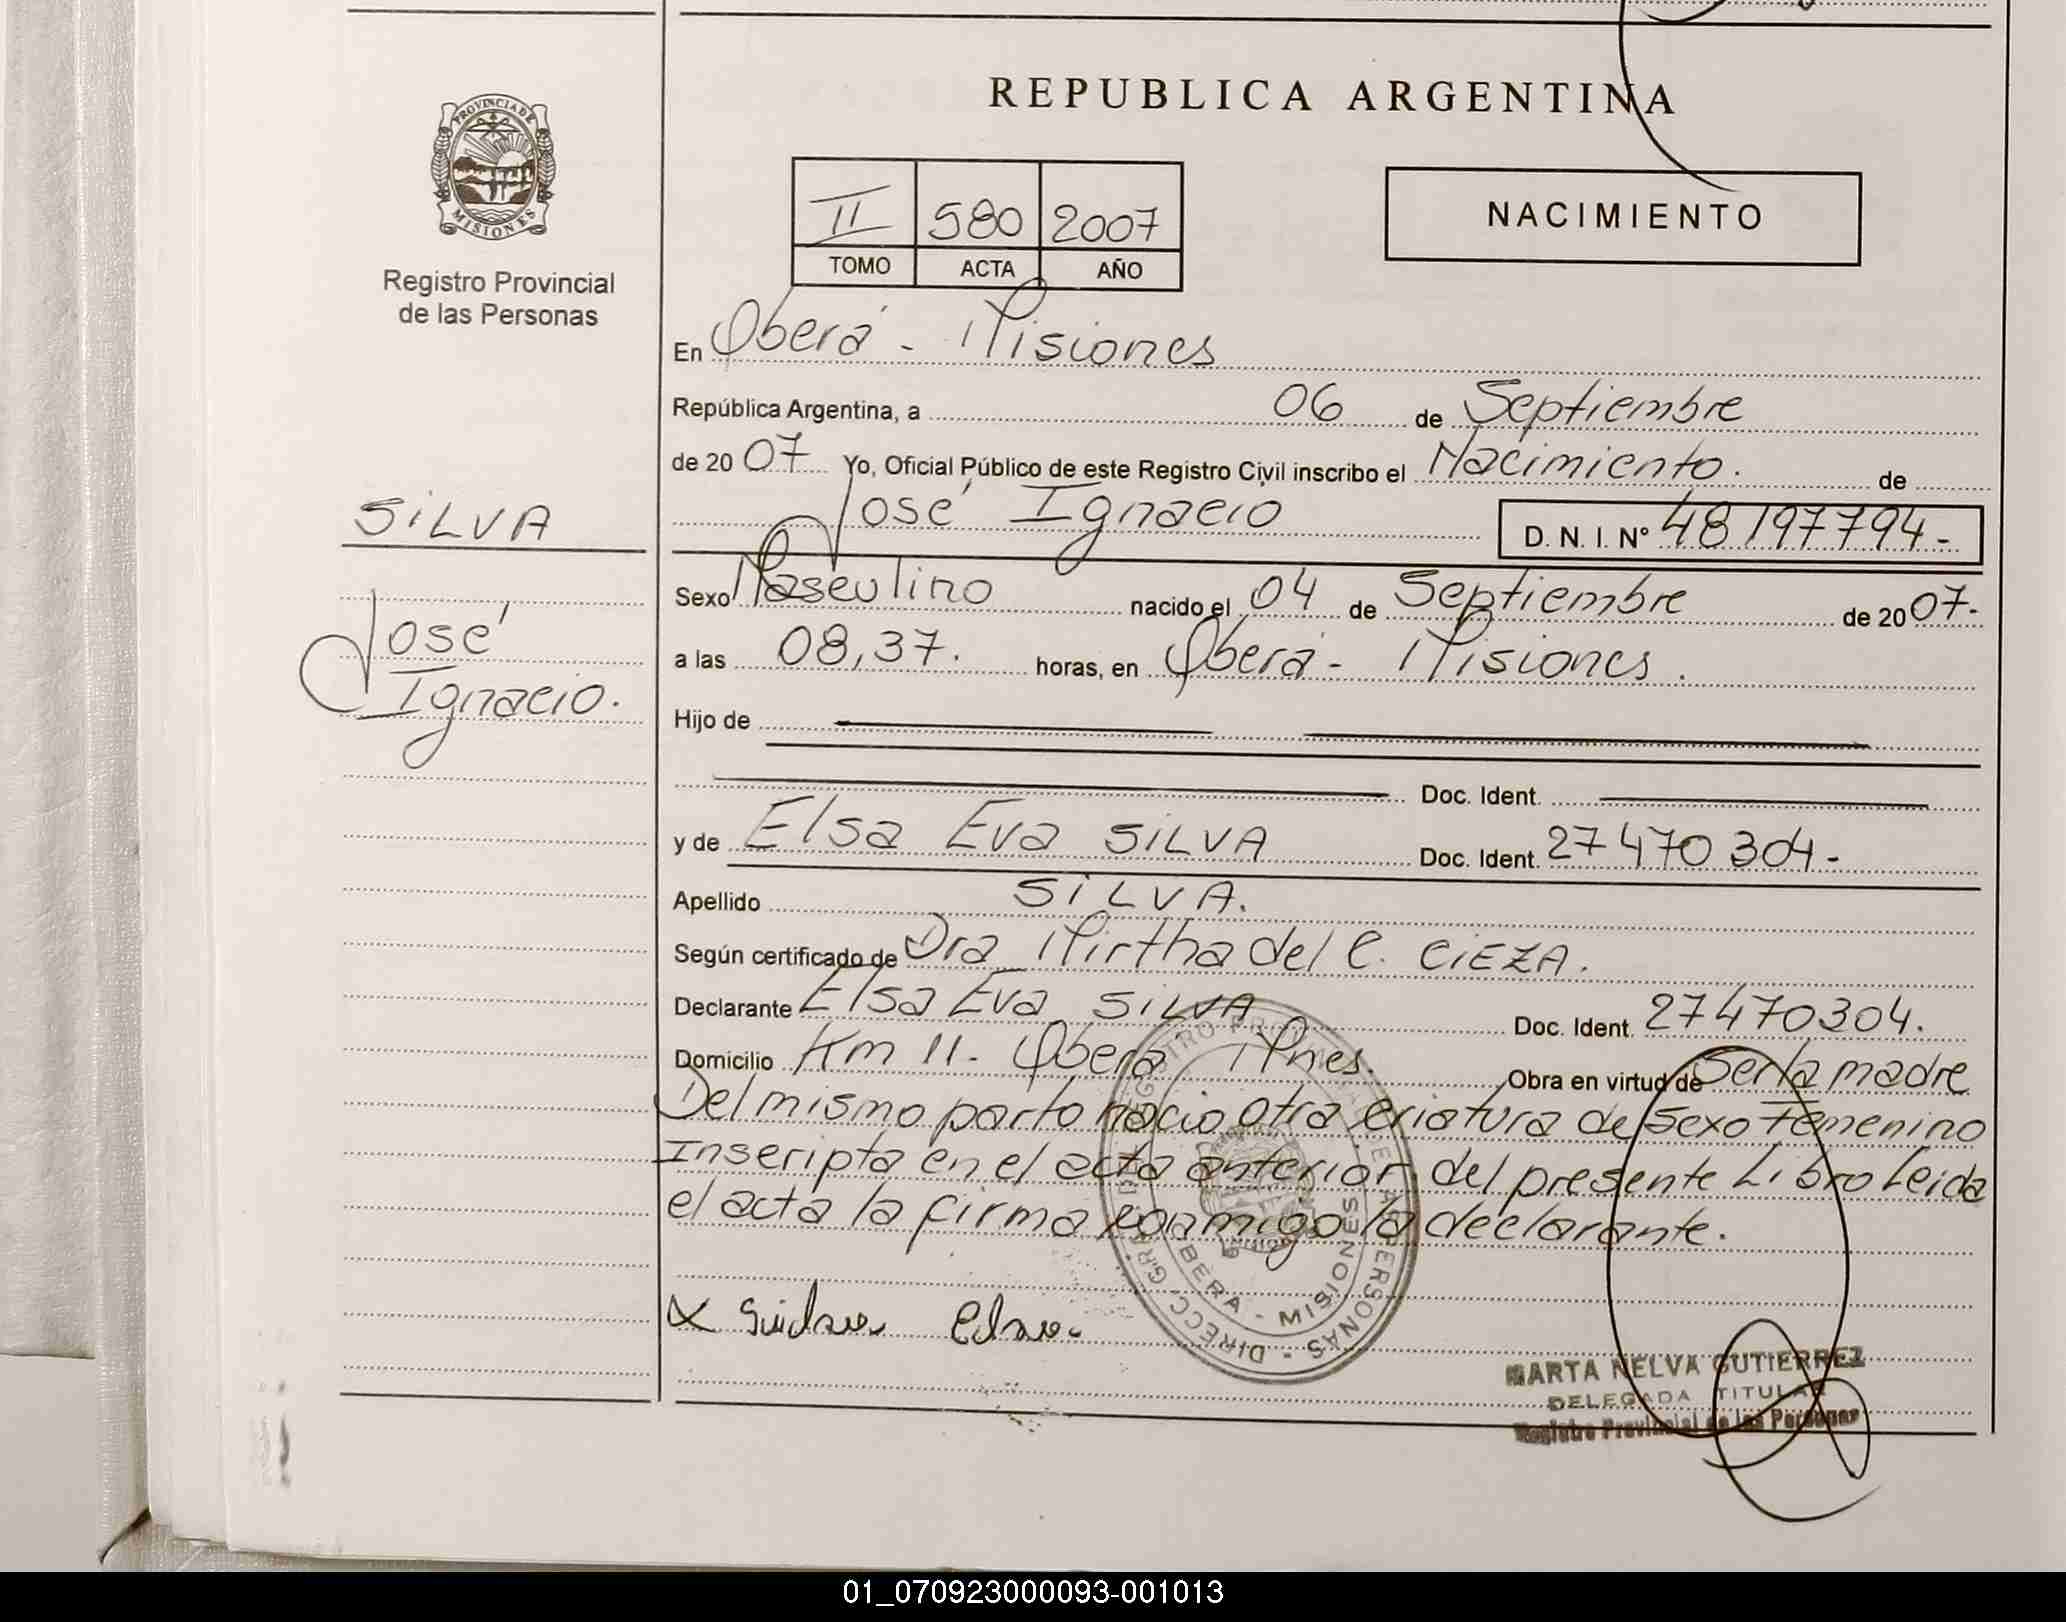 REPUBLICA ARGENTINA
PROVINCIA DE
MISIONES
Registro Provincial
de las Personas
II 580 2007
TOMO ACTA AÑO
NACIMIENTO
En Oberá - Misiones
República Argentina, a 06 de Septiembre
de 20 07 Yo, Oficial Público de este Registro Civil inscribo el Nacimiento. de
José Ignacio D. N. I. Nº 48197794-
SILVA
José
Ignacio.
Sexo Masculino nacido el 04 de Septiembre de 20 07-
a las 08,37. horas, en Oberá - Misiones.
Hijo de
Doc. Ident.
y de Elsa Eva SILVA Doc. Ident. 27470304-
Apellido SILVA.
Según certificado de Dra Mirtha del C. CIEZA.
Declarante Elsa Eva SILVA Doc. Ident. 27470304.
Domicilio Km 11. Oberá Mnes. Obra en virtud de ser la madre
Del mismo parto nacio otra criatura de sexo Femenino
Inscripta en el acta anterior del presente Libro Leida
el acta la firma conmigo la declarante.
MARTA NELVA GUTIERREZ
DELEGADA TITULAR
Registro Provincial de las Personas
01_070923000093-001013